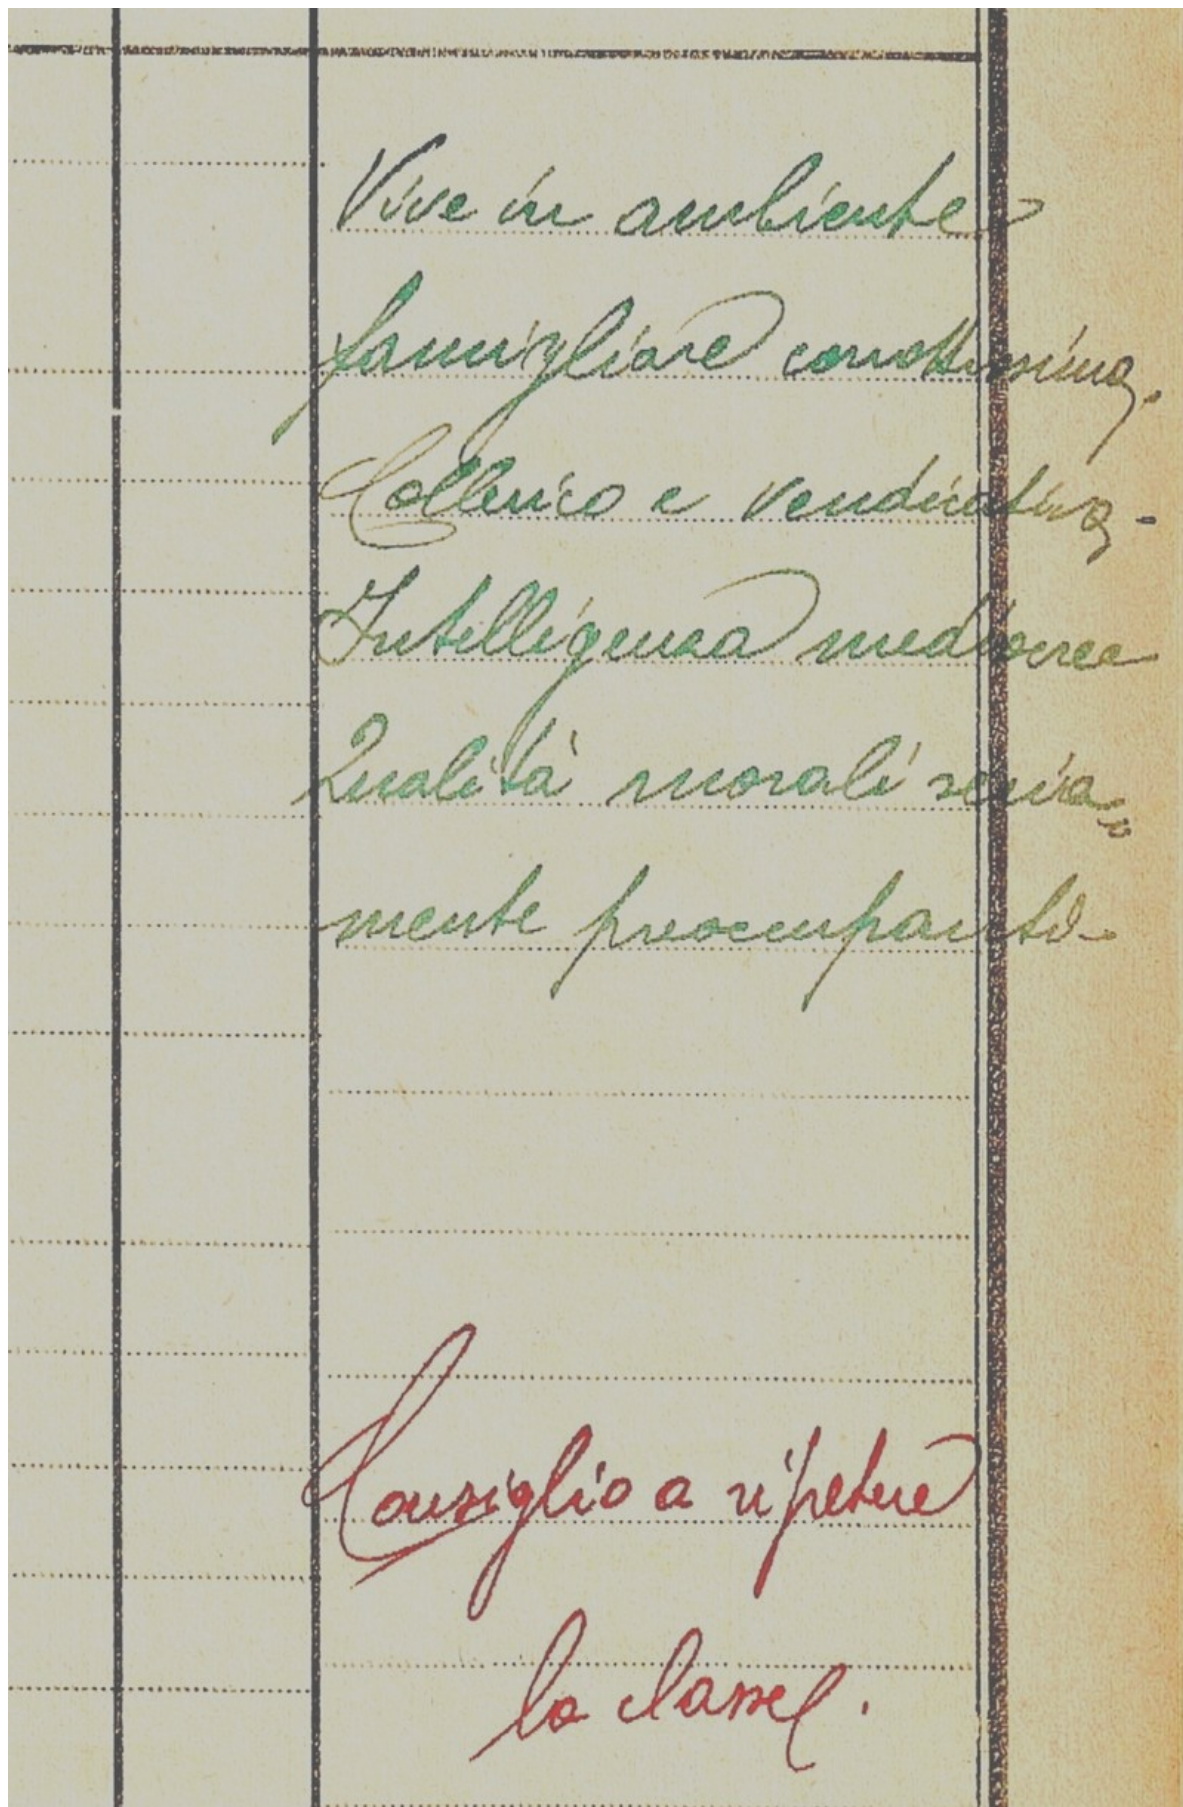 Vive in ambiente
famigliare corrottissimo.
Collerico e vendicativo -
Intelligenza mediocre
Qualità morali seria„
mente preoccupanti -
Consiglio a ripetere
la classe.